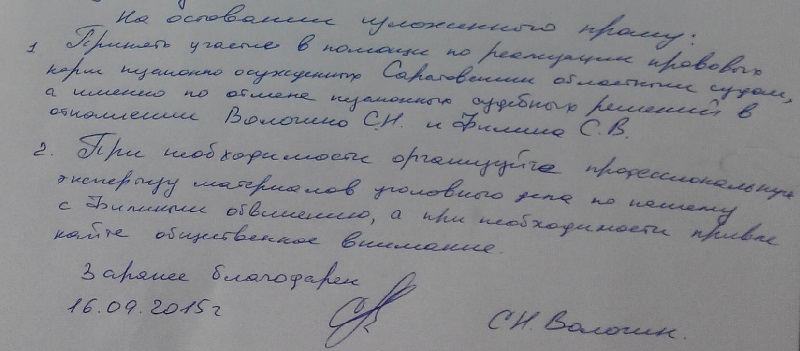 На основании изложенного прошу:
1. Принять участие в помощи по реализации правовых
норм незаконно осужденных Саратовским областным судом,
а именно по отмене незаконных судебных решений в
отношении Вологино С.Н. и Филина С.В.
2. При необходимости организуйте профессиональную
экспертизу материалов уголовного дела по нашему
с Филиным обвинению, а при необходимости привле
кайте общественное внимание.
Заранее благодарен
16.09.2015г С.Н. Вологин.